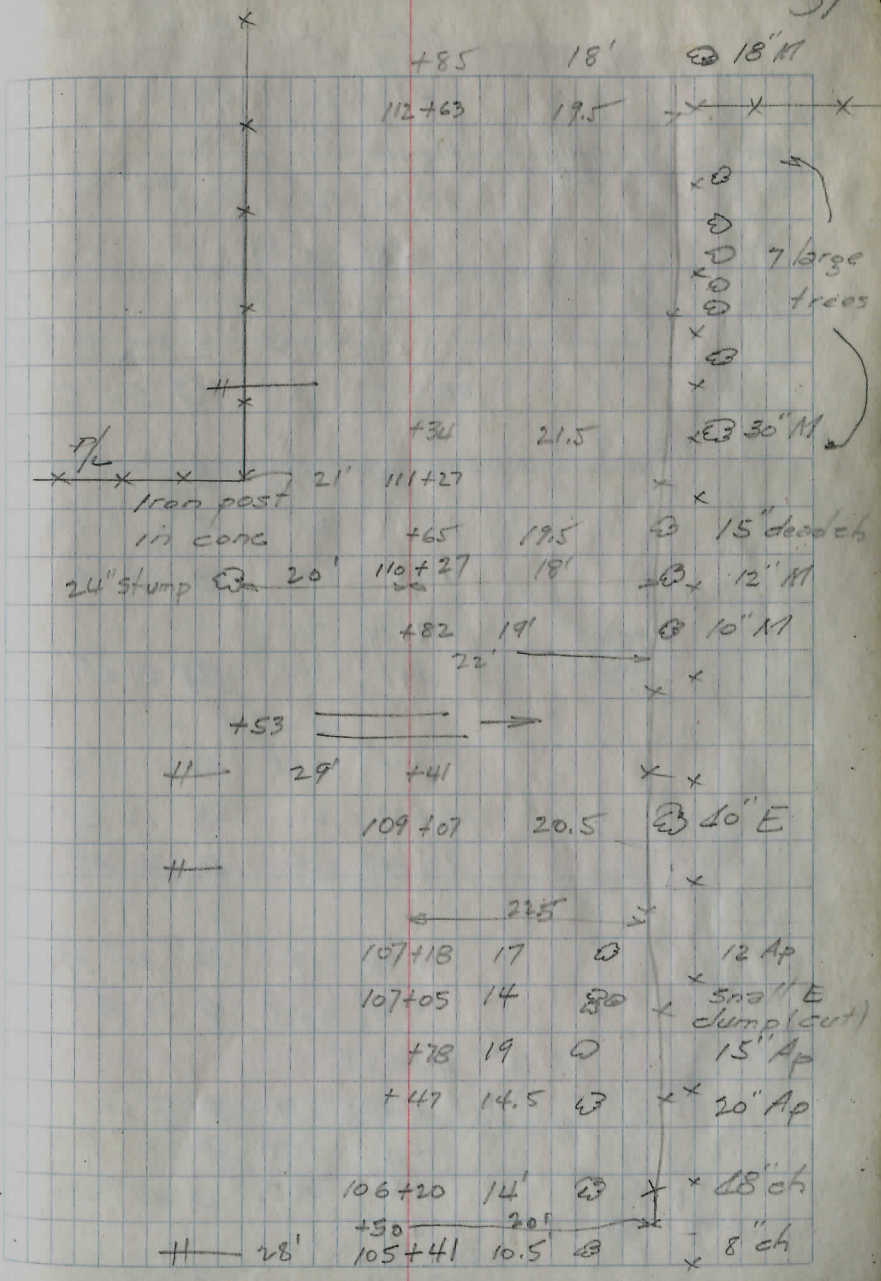 +85 18' 18" M
112+63 19.5
7 large
trees
+34 21.5 30" M
P/L
21' 111+27
Iron post
in conc +65 19.5 15" dead ch
24" stump 20' 110+27 18' 12" M
+82 19' 10" M
22'
+53
29' +41
109+07 20.5 40" E
22.5
107+18 17 12 Ap
107+05 14 Small E
clump (cut)
+78 19 15" Ap
+47 14.5 20" Ap
106+20 14' 48" ch
+50 20'
28' 105+41 10.5' 8" ch